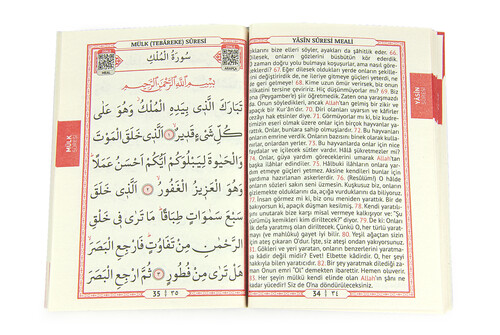 MÜLK (TEBÂREKE) SÛRESİ
سُورَةُ الْمُلْكِ
بِسْمِ اللّٰهِ الرَّحْمٰنِ الرَّحِيمِ
تَبَارَكَ الَّذ۪ى بِيَدِهِ الْمُلْكُ وَهُوَ عَلٰى
كُلِّ شَىْءٍ قَد۪يرٌ ۝ اَلَّذ۪ى خَلَقَ الْمَوْتَ
وَالْحَيٰوةَ لِيَبْلُوَكُمْ اَيُّكُمْ اَحْسَنُ عَمَلًا
وَهُوَ الْعَز۪يزُ الْغَفُورُ ۝ اَلَّذ۪ى خَلَقَ
سَبْعَ سَمٰوَاتٍ طِبَاقًا مَا تَرٰى ف۪ى خَلْقِ
الرَّحْمٰنِ مِنْ تَفَاوُتٍ فَارْجِعِ الْبَصَرَ
هَلْ تَرٰى مِنْ فُطُورٍ ۝ ثُمَّ ارْجِعِ الْبَصَرَ
35 | ٣٥
MÜLK
YÂSÎN SÛRESİ MEALİ
klarını bize elleri söyler, ayakları da şâhitsik eder. 66.
O zaman doğru yolu bulmaya koşuşurlar, ama nasıl göre-
ceklerdi? 67. Eğer dileseydik oldukları yerde onların şekille-
rini değiştirirdik de, ne ileriye gitmeye güçleri yeterdi, ne
geri gelmeye! 68. Kime uzun ömür verirsek, biz onun
hilkatini tersine çeviririz. Hiç düşünmüyorlar mı? 69. Biz
ona (Peygamber'e) şiir öğretmedik. Zaten ona yaraşmazdı
da. Onun söyledikleri, ancak Allah'tan gelmiş bir zikir ve
apaçık bir Kur'ân'dır. 70. Diri olanları uyarsın ve kâfirler
azâbı hak etsinler diye. 71. Görmüyorlar mı ki, biz kudre-
timizin eseri olmak üzere onlar için birçok hayvanlar ya-
rattık. Onlar, bunlara sahip olmuşlardır. 72. Bu hayvanları
onların emrine verdik. Onların bazısını binek olarak kullanır,
bazısını da yerler. 73. Bu hayvanlarda onlar için nice
faydalar ve içilecek sütler vardır. Hâlâ şükretmezler mi?
74. Onlar, güya yardım göreceklerini umarak Allah'tan
başka ilâhlar edindiler. 75. Hâlbuki ilâhların onlara yardım
etmeye güçleri yetmez. Aksine kendileri bunlar için
yardıma hazırlanan askerlerdir. 76. (Resûlüm!) O hâlde
onların sözleri sakın seni üzmesin. Kuşkusuz biz, onların
gizlemekte olduklarını da, açığa vurduklarını da biliyoruz.
77. İnsan görmez mi ki, biz onu meniden yarattık. Bir de
bakıyorsun ki, apaçık düşman kesilmiş. 78. Kendi yaratılı-
şını unutarak bize karşı misal vermeye kalkışıyor ve: "Şu
çürümüş kemikleri kim diriltecek?" diyor. 79. De ki: Onları
ilk defa yaratmış olan diriltecek. Çünkü O, her türlü yarat-
mayı (ve mahlûku) gayet iyi bilir. 80. Yeşil ağaçtan sizin
için ateş çıkaran O'dur. İşte, siz ateşi ondan yakıyorsunuz.
81. Gökleri ve yeri yaratan, onların benzerlerini yaratma-
ya kâdir değil midir? Evet! Elbette kâdirdir. O, her şeyi
hakkıyla bilen yaratıcıdır. 82. Bir şey yaratmak dilediği za-
man Onun emri "Ol" demekten ibarettir. Hemen oluverir.
83. Her şeyin mülkü kendi elinde olan Allah'ın şânı ne
kadar yücedir! Siz de O'na döndürüleceksiniz.
34 | ٣٤
YÂSÎN